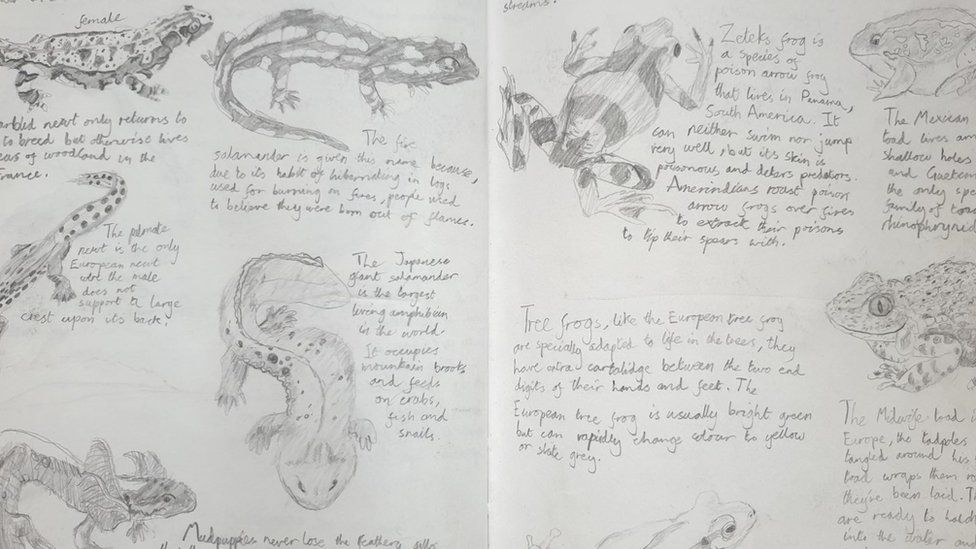 female
arbled newt only returns to
to breed but otherwise lives
eas of woodland in the
France.
The fire
salamander is given this name because,
due to its habit of hibernating in logs
used for burning on fires, people used
to believe they were born out of flames.
The palmate
newt is the only
European newt
the male
does not
support a large
crest upon its back.
The Japanese
giant salamander
is the largest
living amphibian
in the world.
It occupies
mountain brooks
and feeds
on crabs,
fish and
snails.
Mudpuppies never lose the feathery gills
streams.
Zeteks frog is
a species of
poison arrow frog
that lives in Panama,
South America. It
can neither swim nor jump
very well, but its skin is
poisonous and deters predators.
Amerindians roast poison
arrow frogs over fires
to extract their poisons
to tip their spears with.
Tree frogs, like the European tree frog
are specially adapted to life in the trees, they
have extra cartalidge between the two end
digits of their hands and feet. The
European tree frog is usually bright green
but can rapidly change colour to yellow
or slate grey.
The Mexican
toad lives
shallow holes
and
the only
family of
rhinophrynid
The Midwife toad
Europe, the tadpoles
tangled around his
toad wraps them
they've been laid. Th
are ready to
into the water